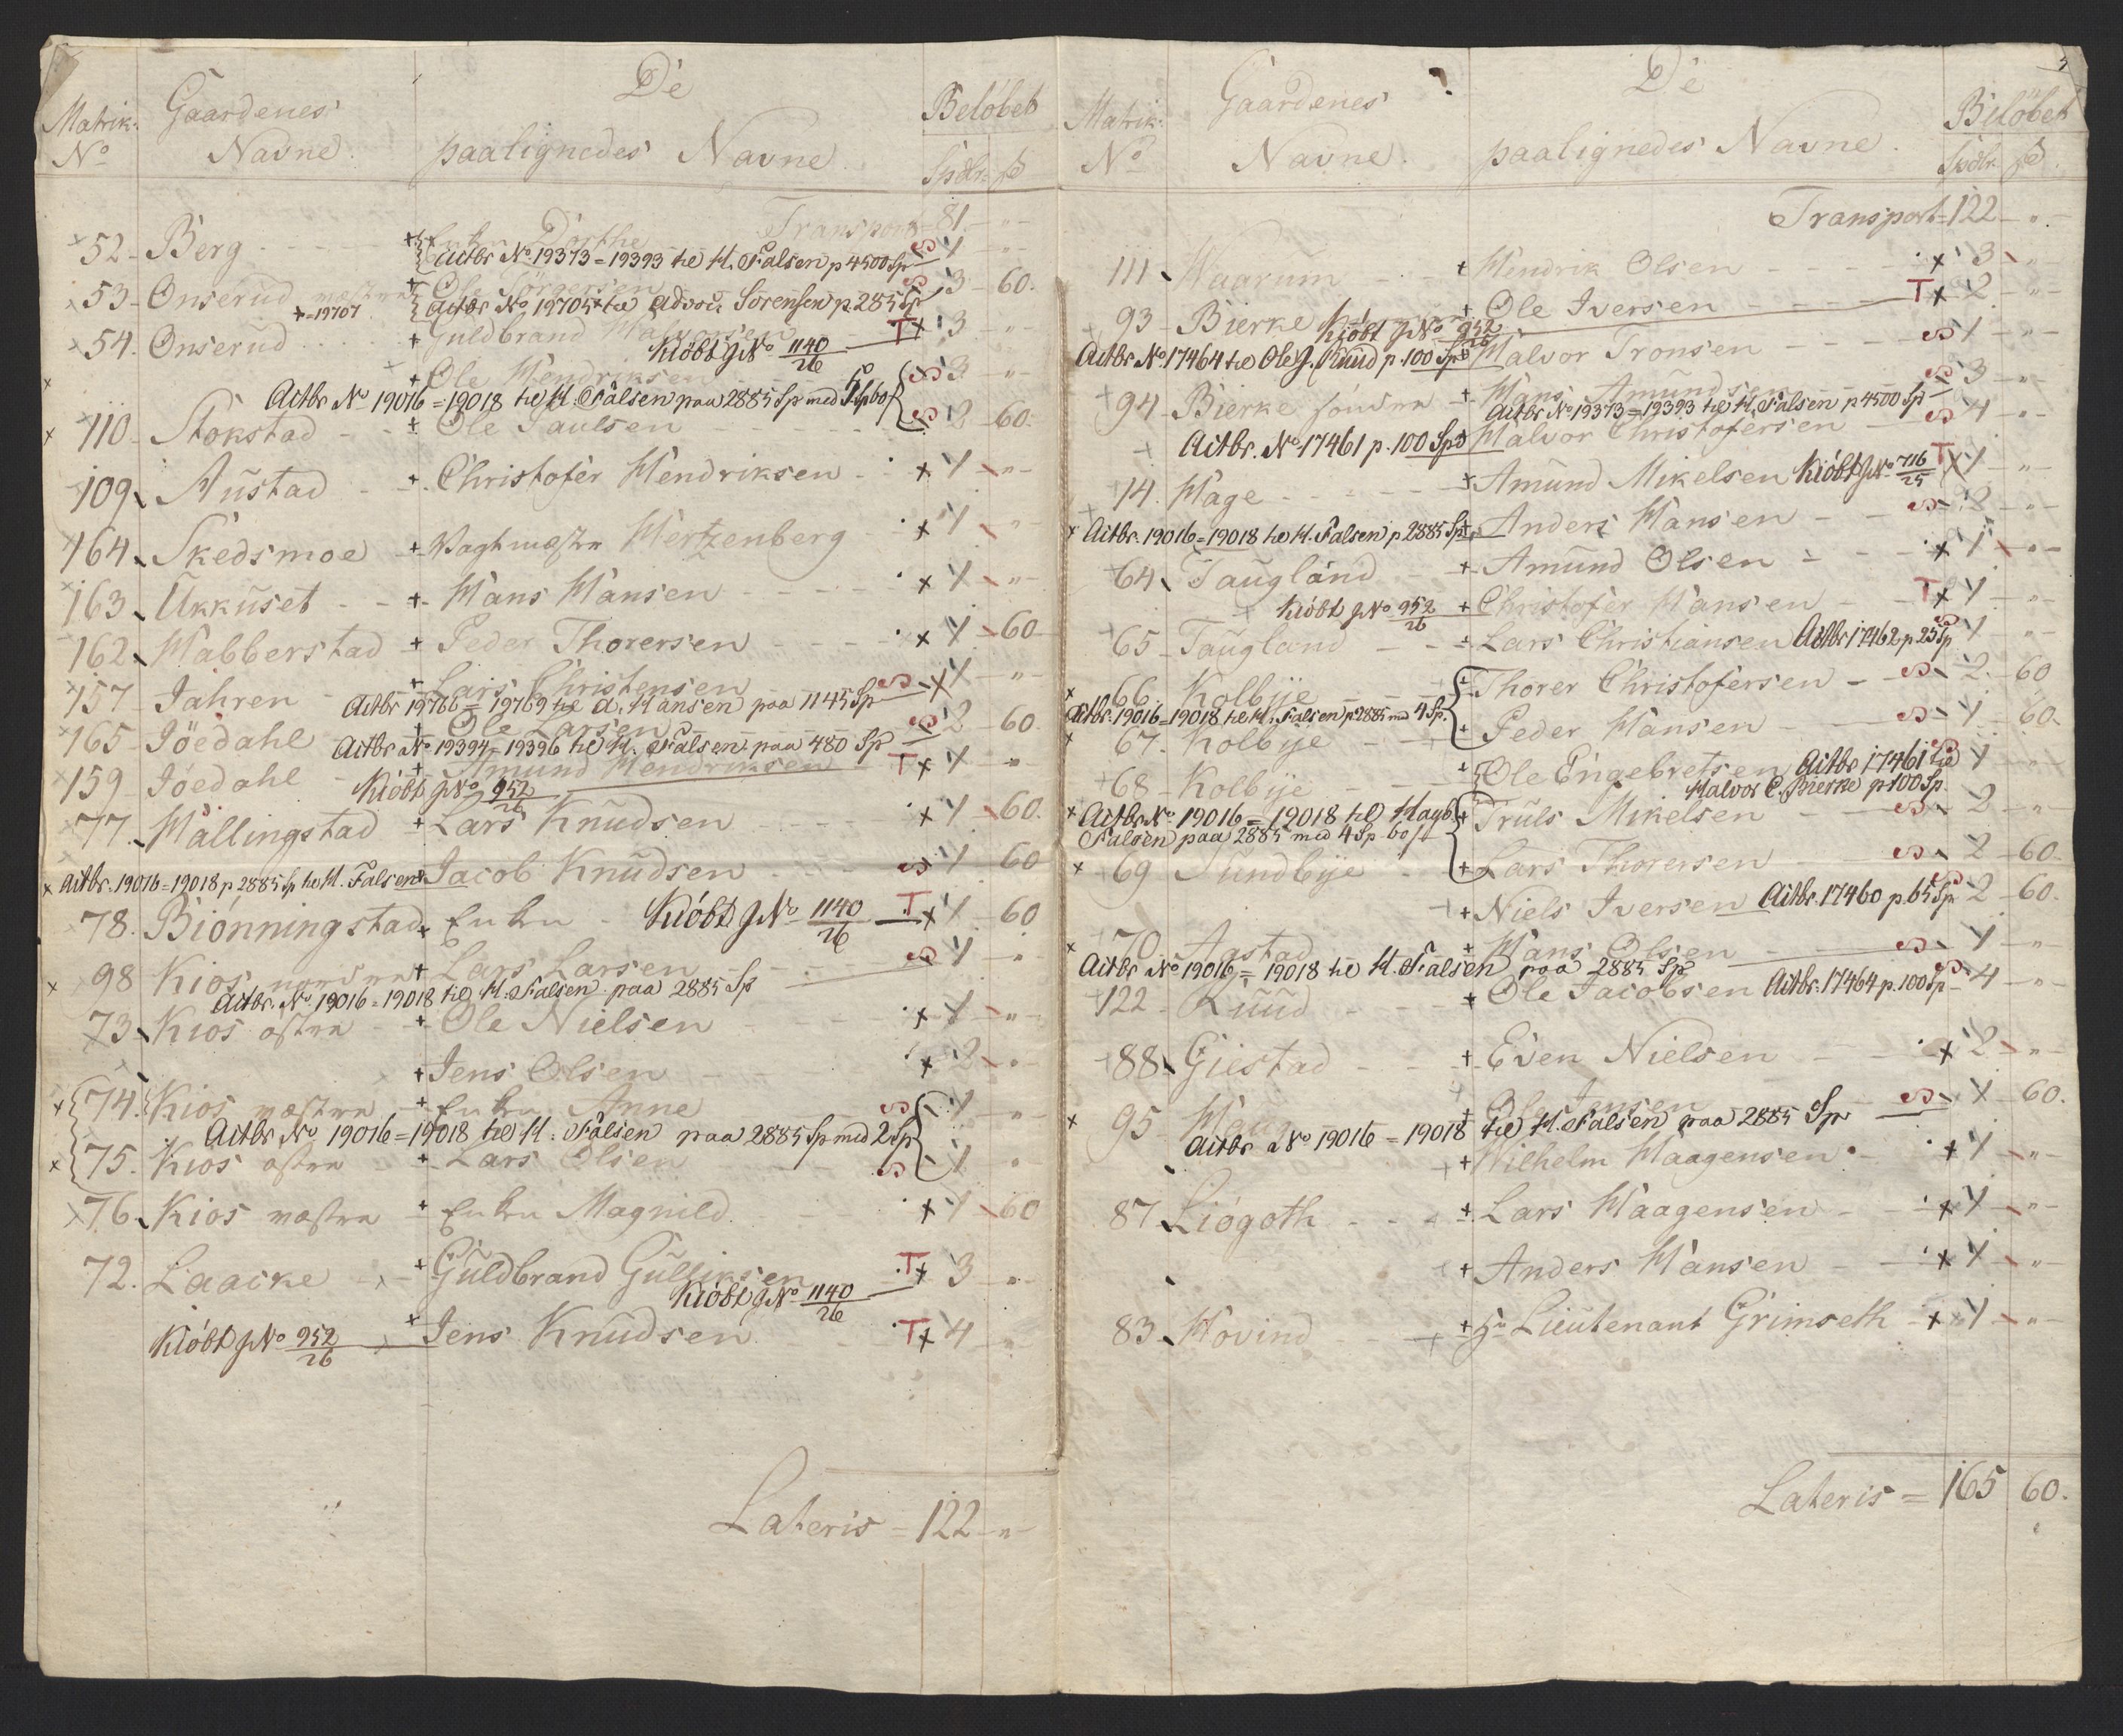 Matrik: Gaardenes De Beløbet
No Navne. paalignedes Navne Spdlr. ß
Transport = 81. - "
52 - Berg Dorthe 1 - "
Actbr No 19373 = 19393 til H. Falsen p 4500 Sp
53 - Onserud Ole Jörgensen 3 - 60.
19707 Actbr No 19705 til Advoc. Sorensen p. 285 Sp
54. Onserud Guldbrand Halvorsen T 3 - "
Kiöbt J No 1140/26
Ole Hendriksen 3 - "
Actbr No 19016 = 19018 til H. Falsen paa 2885 Sp med
110 - Stokstad Ole Paulsen 2 - 60.
109 Austad Christofer Hendriksen 1 - "
164 Skedsmoe Vagtmester Hertzenberg 1 - "
163 Ukkuset Hans Hansen 1 - "
162 Habberstad Peder Thorersen 1 - 60
157 Jahren Lars Christensen 1 - "
Actbr 19766 = 19769 til A. Hansen paa 1145 Sp
165 - Jöedahl Ole Larsen 2 - 60.
Actbr No 19394 = 19396 til H. Falsen paa 480 Sp
159 - Jöedahl Amund Hendriksen T 1 - "
Kiöbt J No 952/26
77. Hallingstad Lars Knudsen 1 - 60.
Actbr. 19016 = 19018 p. 2885 Sp til H. Falsen Jacob Knudsen 1 - 60
78. Biönningstad Enken Kiöbt J No 1140/26 T 1 - 60
98 Kios nordre Lars Larsen 1 - "
Actbr. No 19016 = 19018 til H. Falsen paa 2885 Sp
73 Kios østre Ole Nielsen 1 - "
Jens Olsen 2 - "
74. Kios vestre Enken Anne 1 - "
Actbr No 19016 = 19018 til H. Falsen paa 2885 Sp med 2 Sp
75. Kios østre Lars Olsen 1 - "
76. Kios vestre Enken Magnild 1 - 60
72. Laacke Guldbrand Gulliksen T 3 - "
Kiöbt J No 1140/26
Kiöbt J No 952/26 Jens Knudsen T 4 - "
Lateris = 122 - "
Matrik: Gaardenes De Beløbet
No Navne. paalignedes Navne. Spdlr. ß.
Transport = 122 - "
111 Haarum Hendrik Olsen 3 - "
93 - Bierke Ole Iversen T 2 - "
Kiöbt J No 952/26
Actbr No 17464 til Ole J. Ruud p. 100 Spd Halvor Tronsen 1 - "
94 - Bierke söndre Hans Amundsen 3 - "
Actbr No 19373 = 19393 til H. Falsen p 4500 Sp
Actbr. No 17461 p. 100 Spd Halvor Christofersen 4 - "
14. Hage Amund Mikelsen Kiöbt J No 716/25 T 1 - "
Actbr. 19016 = 19018 til H. Falsen p 2885 Sp Anders Hansen 2 - "
64 Taugland Amund Olsen 1 - "
Kiöbt J No 952/26 Christofer Hansen T 1 - "
65 - Taugland Lars Christiansen Actbr 17462 p 25 Sp 1 - "
66. Kolbye Thorer Christofersen 2 - 60
Actbr. 19016 = 19018 til H. Falsen p 2885 med 4 Sp.
67. Kolbye Peder Hansen 1 60.
68 - Kolbye Ole Engebretsen Actbr 17461 til 1 - "
Halvor C. Bierke p 100 Sp.
Actbr No 19016 = 19018 til Hagb. Truls Mikelsen 2 - "
Falsen paa 2885 med 4 Sp 60 ß
69 Sundbye Lars Thorersen 2 - 60.
Niels Iversen Actbr. 17460 p. 65 Sp 2 - 60.
70 - Agstad Hans Olsen 1 - "
Actbr No 19016 = 19018 til H. Falsen paa 2885 Sp
122 - Ruud Ole Jacobsen Actbr. 17464 p. 100 Sp 4 - "
88 Giestad Even Nielsen 2 - "
95 Haug Ole Jensen 1 - 60.
Actbr No 19016 = 19018 til H. Falsen paa 2885 Sp.
Wilhelm Haagensen 1 - "
87 Liögoth Lars Haagensen 1 - "
Anders Hansen 1 - "
83 Hovind Hr Lieutenant Grimseth 1 - "
Lateris = 165 60.